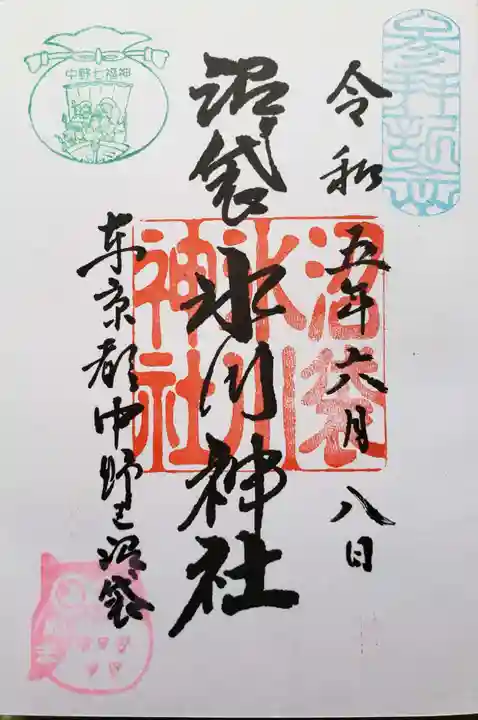 参拝記念
令和五年六月八日
沼袋氷川神社
沼袋
氷川
神社
中野七福神
東京都中野区沼袋